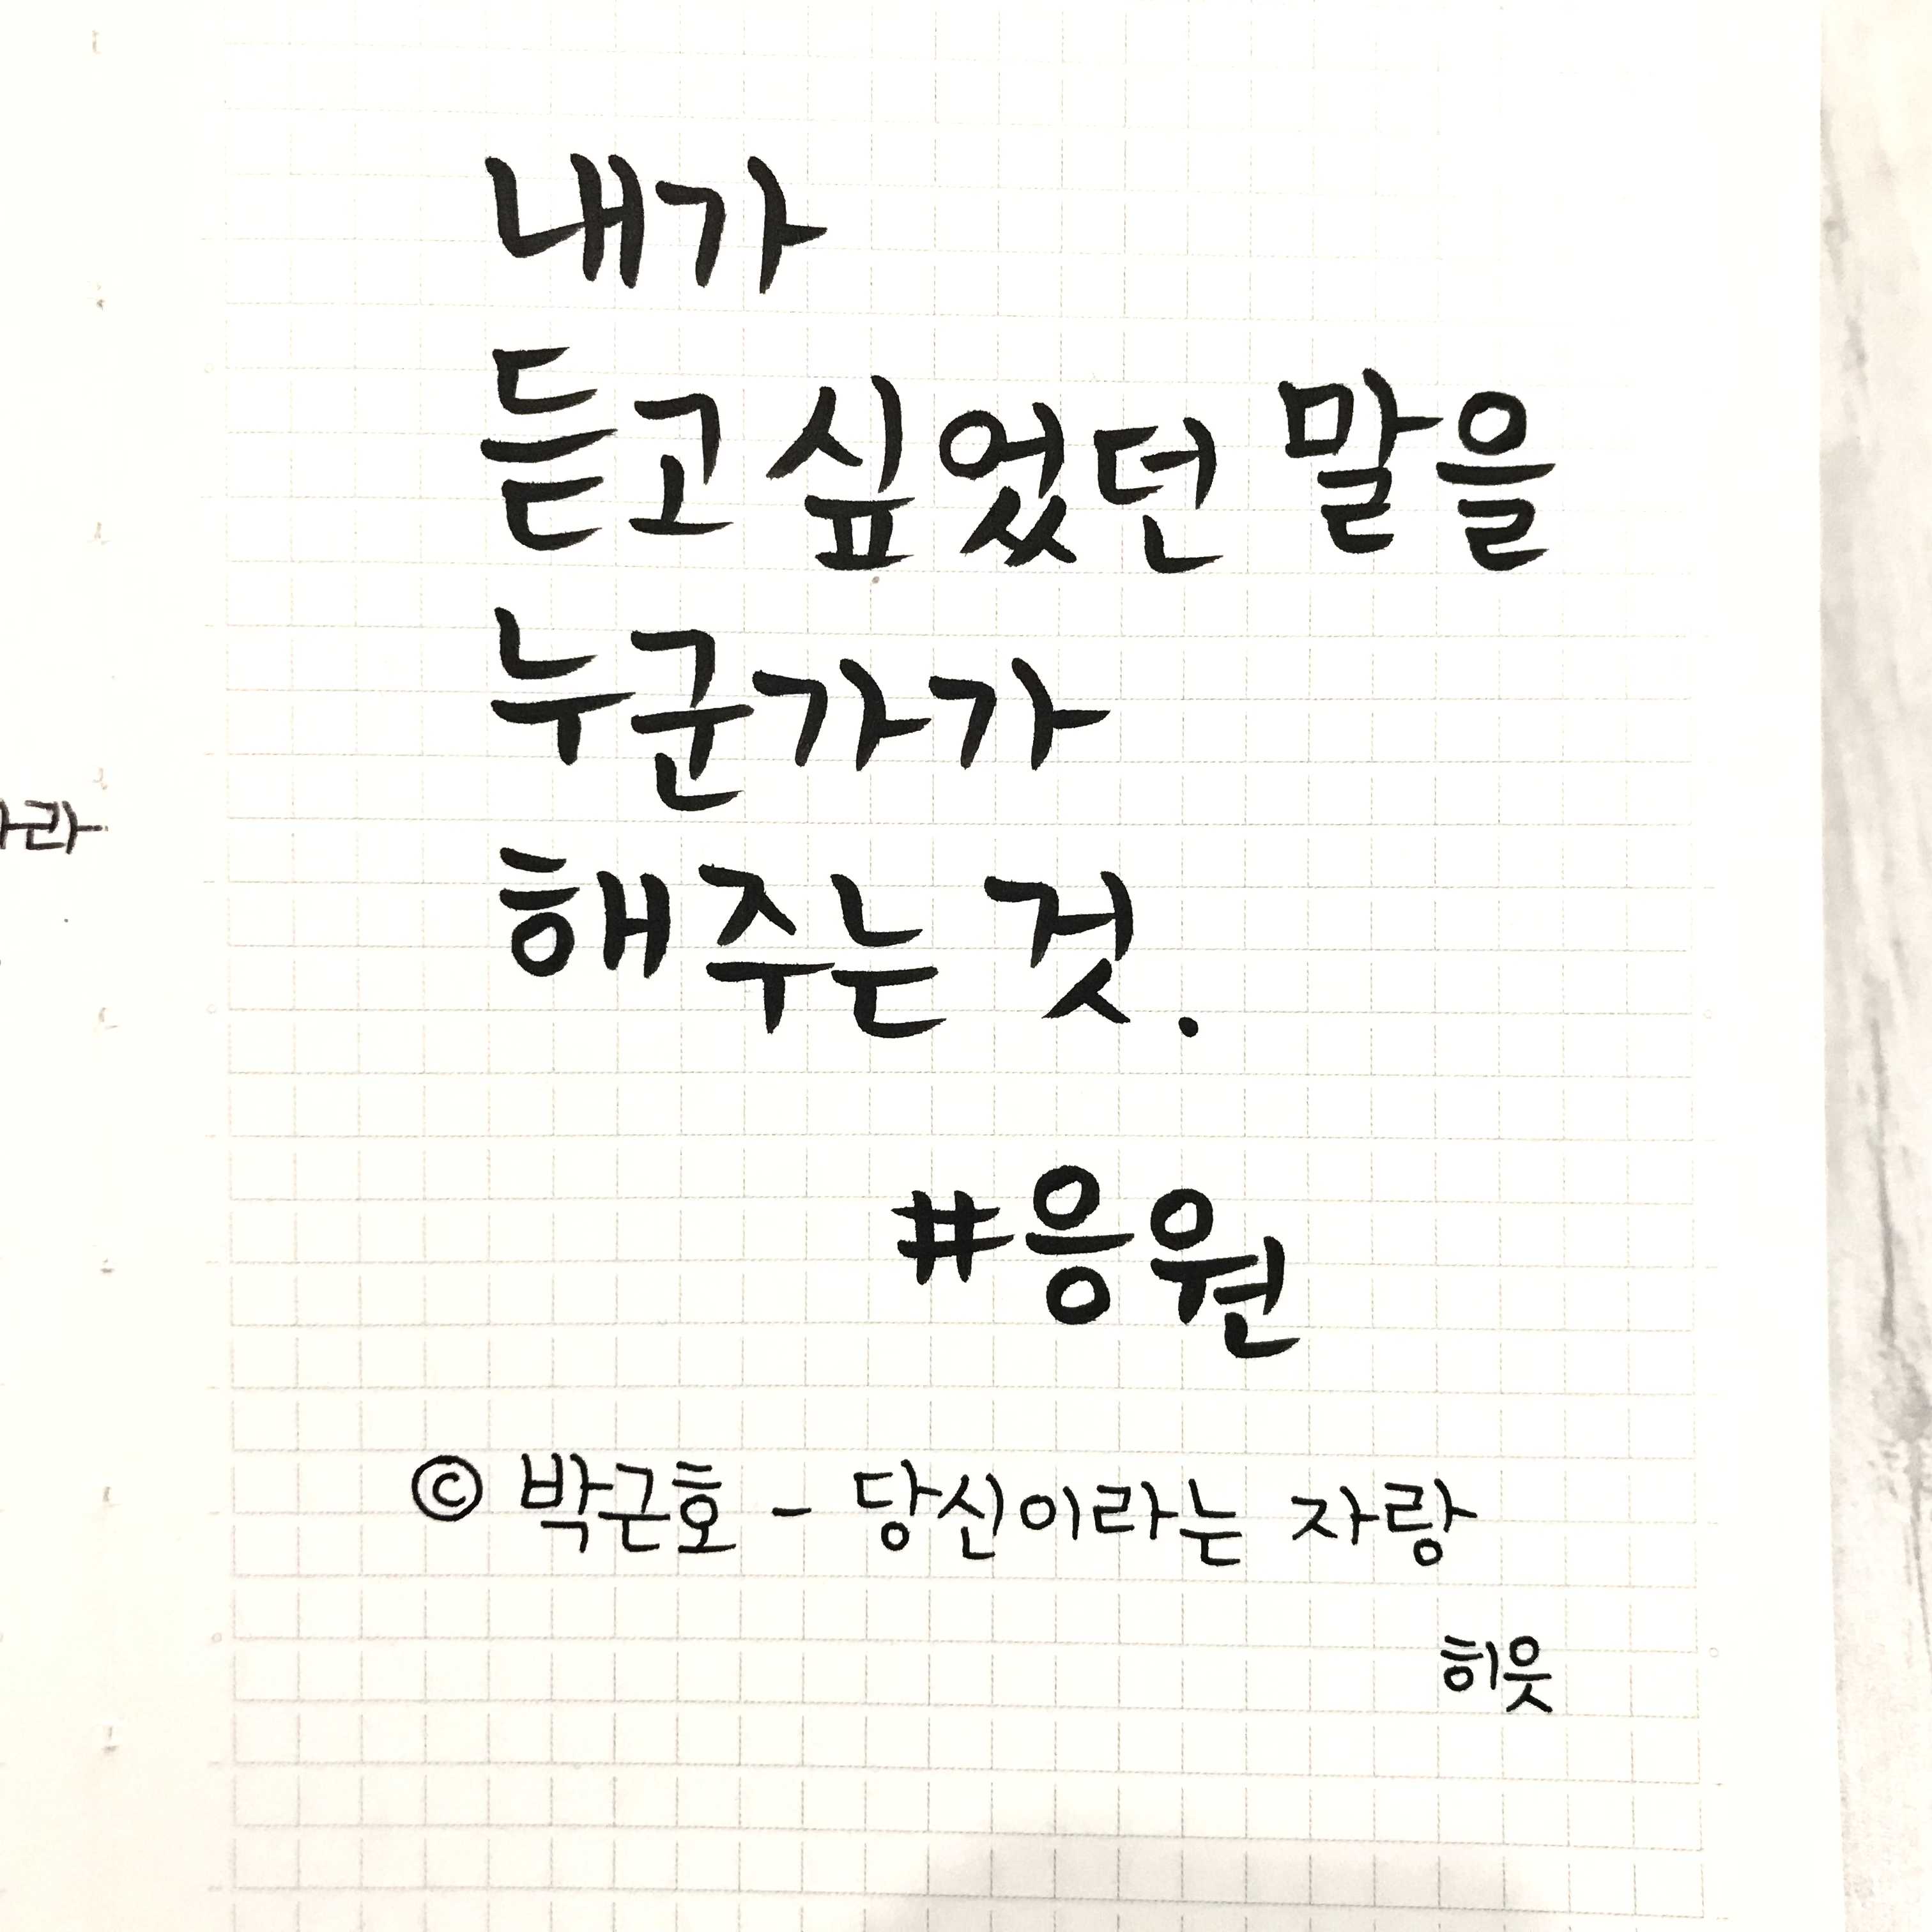 내가
듣고 싶었던 말을
누군가가
해주는 것.
#응원
© 박근호 - 당신이라는 자랑
히읏